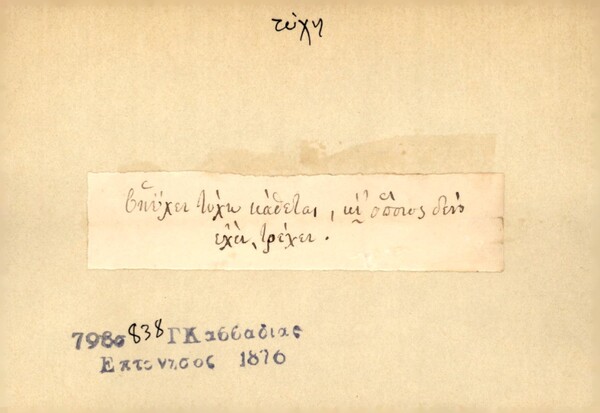 τύχη
τύχη κάθεται, κι' ὅποιος δὲν
ἔχει, τρέχει.
798σ 838 Γ Κασσαδιας
Επτονησος 1876